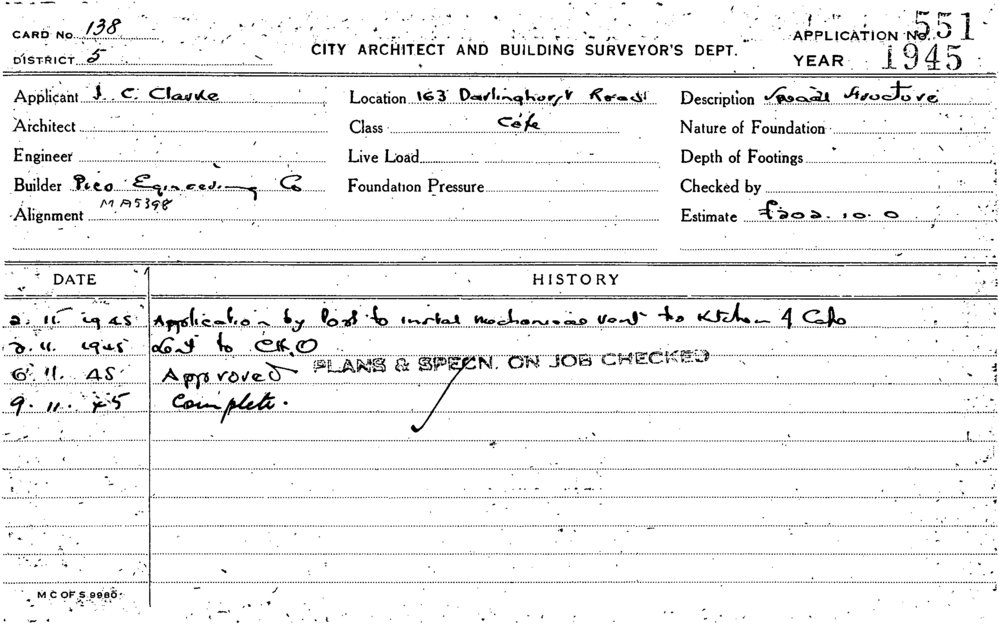 CARD No. 138
DISTRICT 5
CITY ARCHITECT AND BUILDING SURVEYOR'S DEPT.
APPLICATION No. 551
YEAR 1945
Applicant J. C. Clarke
Location 163 Darlinghurst Road
Description Special Structure
Architect
Class Cafe
Nature of Foundation
Engineer
Live Load
Depth of Footings
Builder Pico Egineering Co
Foundation Pressure
Checked by
MA5398
Alignment
Estimate £202.10.0
DATE
HISTORY
2.11.1945 Application by Post to instal mechanical vent to Kitchen of Cafe
2.11.1945 Sent to
6.11.45 Approved
PLANS & SPECN. ON JOB CHECKED
9.11.45 Complete.
M C OF S 9980